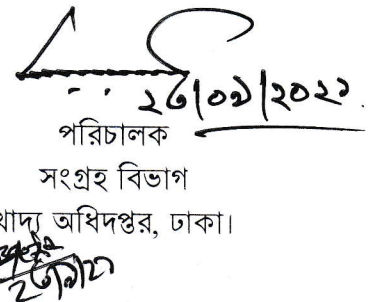 ২৬|০৯|২০২১
পরিচালক
সংগ্রহ বিভাগ
খাদ্য অধিদপ্তর, ঢাকা।